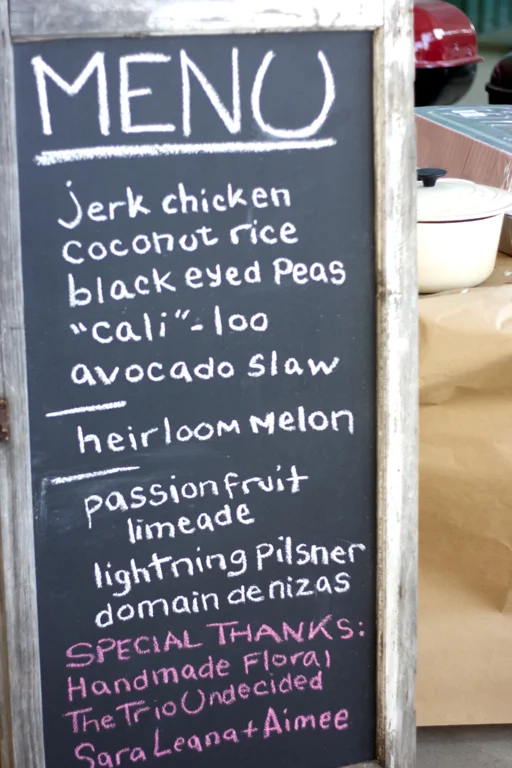 MENU
jerk chicken
coconut rice
black eyed Peas
"cali"-loo
avocado slaw
heirloom Melon
passionfruit
limeade
lightning Pilsner
domain de nizas
SPECIAL THANKS:
Handmade Floral
The Trio Undecided
Sara Leana + Aimee